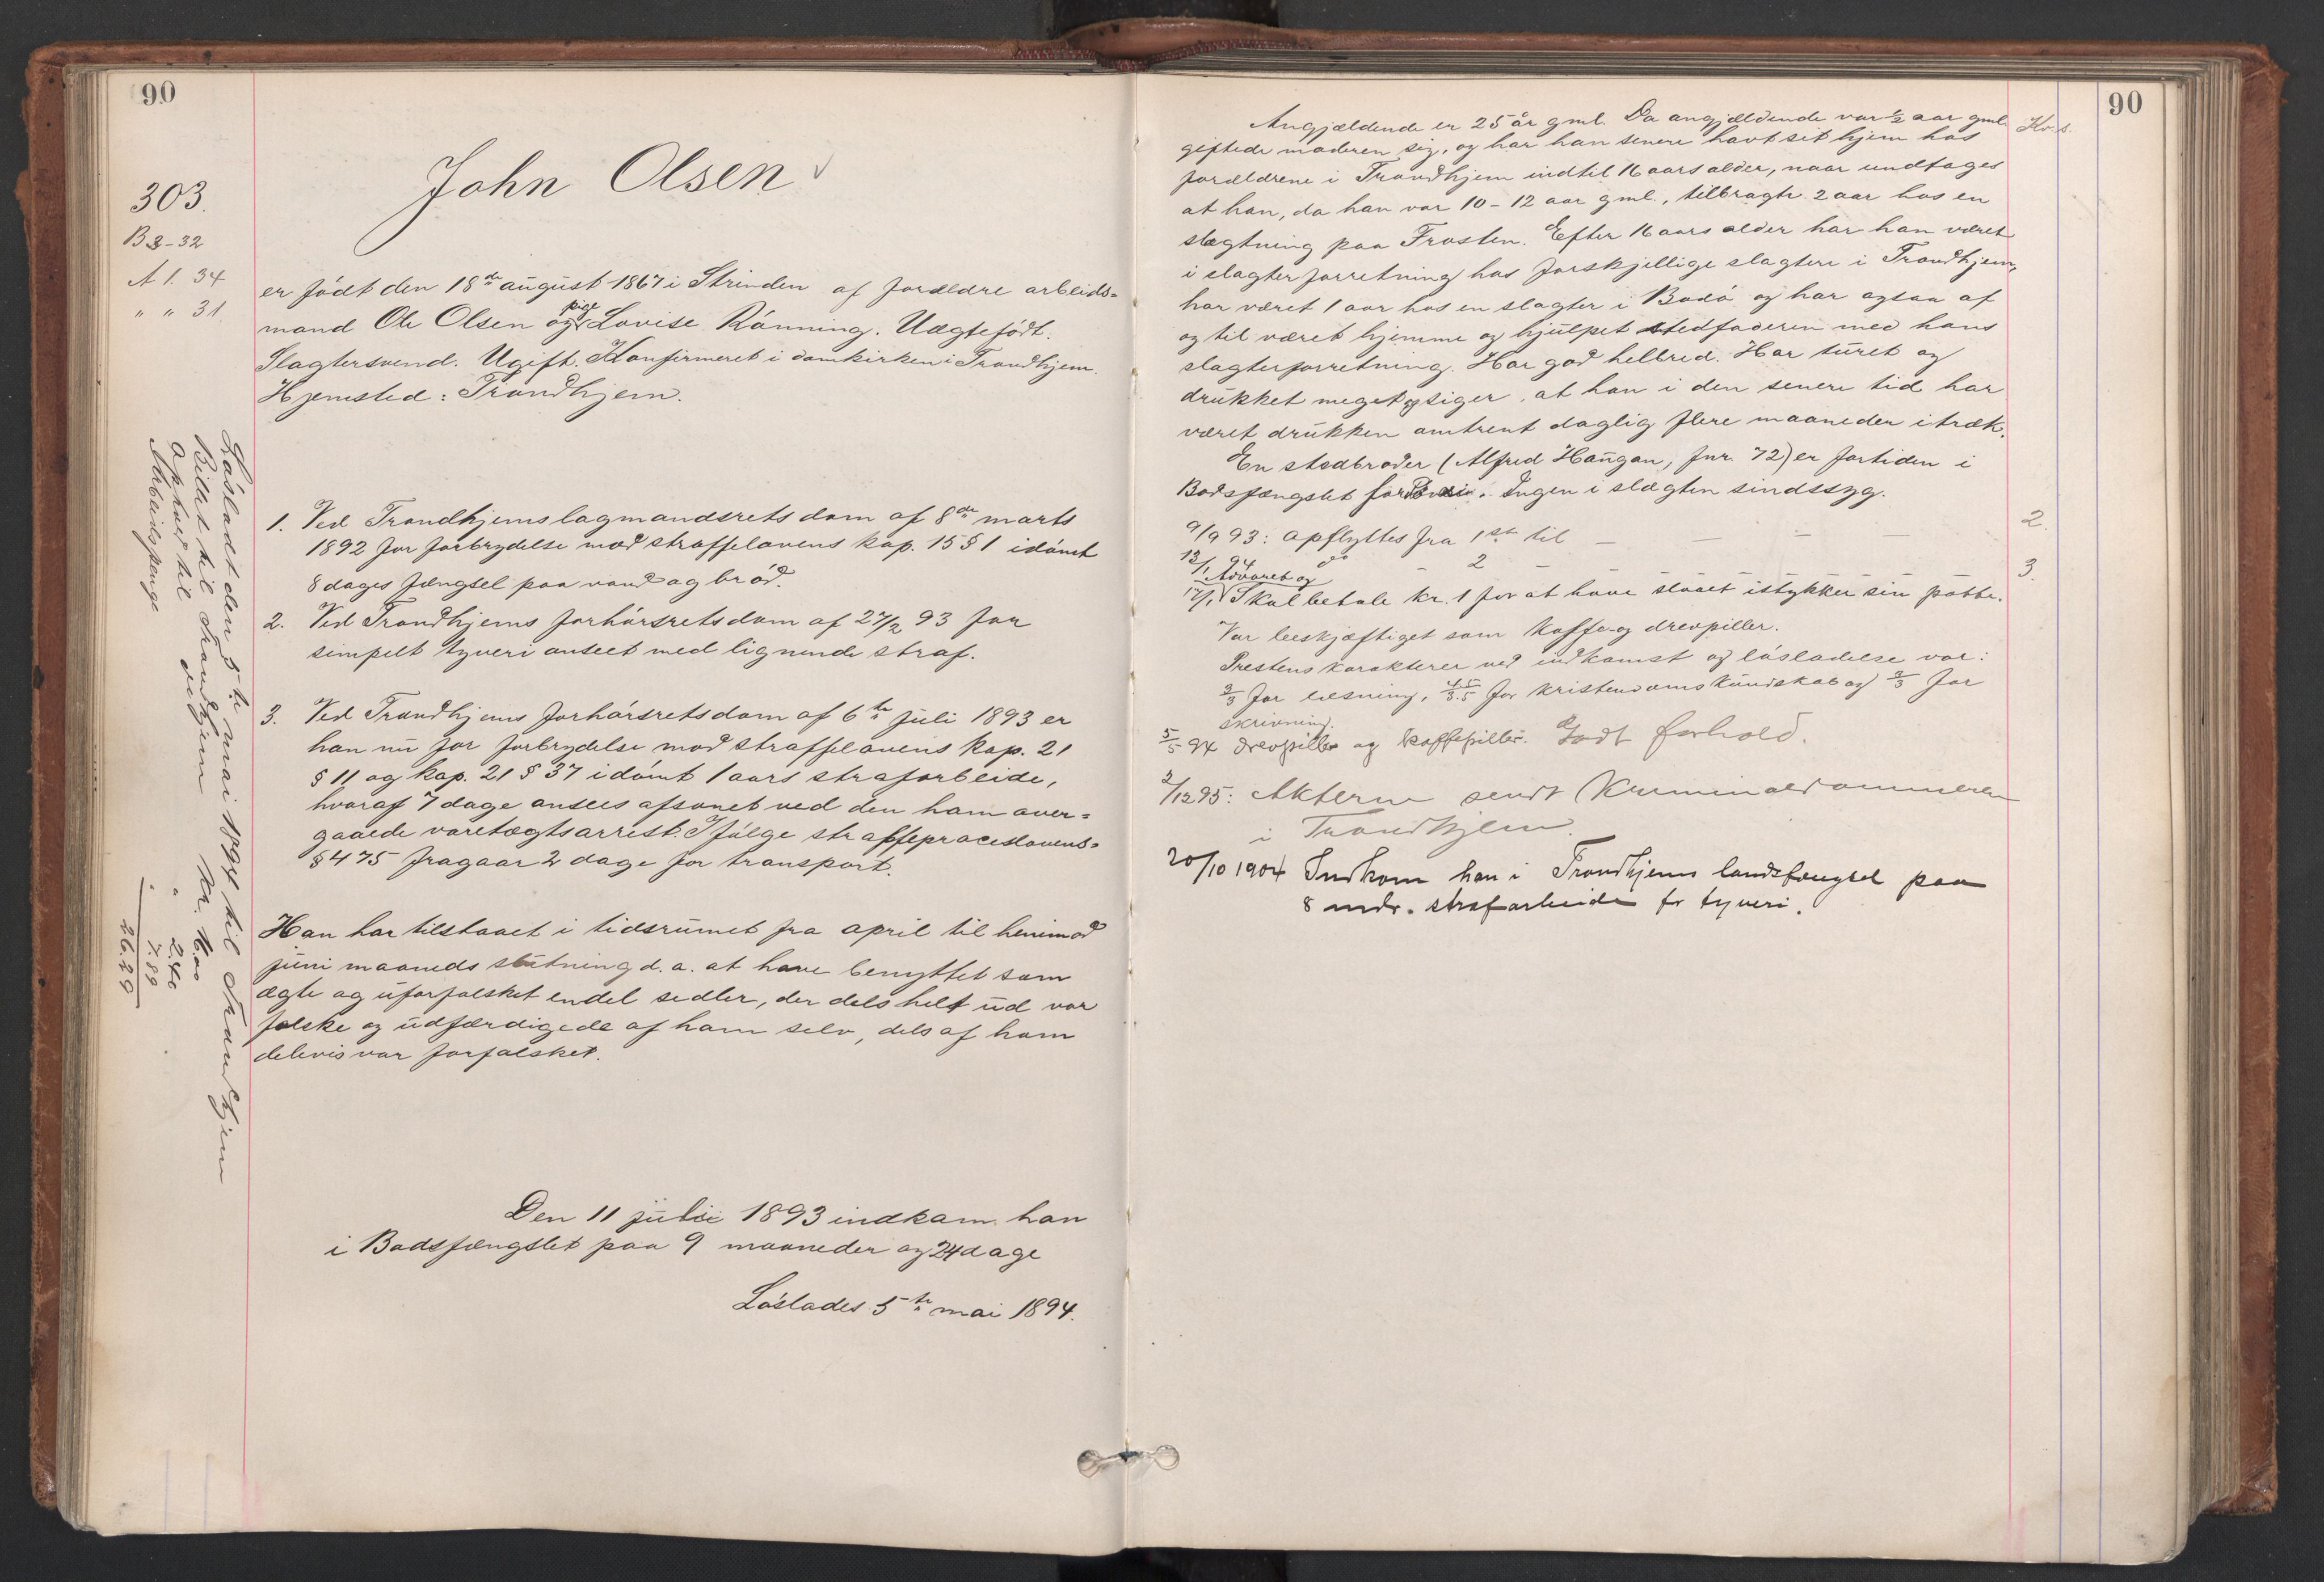 90
303.
B 3-32
A 1. 34
" " 31.
John Olsen
er født den 18de august 1867 i Strinden af forældre arbeids=
mand Ole Olsen og pige Lovise Rönning. Uægtefødt.
Slagtersvend. Ugift. Konfirmeret i domkirken i Trondhjem.
Hjemsted: Trondhjem.
1. Ved Trondhjems lagmandsrets dom af 8de marts
1892 for forbrydelse mod straffelovens kap. 15 § 1 idømt
8 dages fængsel paa vand og brød.
2. Ved Trondhjems forhörsretsdom af 27/2 93 for
simpelt tyveri anseet med lignende straf.
3. Ved Trondhjems forhörsretsdom af 6te juli 1893 er
han nu for forbrydelse mod straffelovens kap. 21
§ 11 og kap. 21 § 37 idömt 1 aars strafarbeide,
hvoraf 7 dage ansees afsonet ved den ham over=
gaaede varetægtsarrest. Ifölge straffeproceslovens=
§ 475 fragaar 2 dage for transport.
Han har tilstaaet i tidsrumet fra april til henimod
juni maaneds slutning d. a. at have benyttet som
ægte og uforfalsket endel sedler, der dels helt ud var
falske og udfærdigede af ham selv, dels af ham
delevis var forfalsket.
Den 11 juli 1893 indkom han
i Bodsfængslet paa 9 maaneder og 24 dage
Löslades 5te mai 1894.
Lösladt den 5te mai 1894 til Trondhjem
Billet til Trondhjem Kr. 16.00
Ophold til " 2.40
Arbeidspenge " 7.89
26.29
90
Angjældende er 25 år gml. Da angjældende var 1/2 aar gml.
Kr. s.
giftede moderen sig, og har han senere havt sit hjem hos
forældrene i Trondhjem indtil 16 aars alder, naar undtages
at han, da han var 10-12 aar gml., tilbragte 2 aar hos en
slægtning paa Frosten. Efter 16 aars alder har han været
i slagterforretning hos forskjellige slagtere i Trondhjem,
har været 1 aar hos en slagter i Bodö og har ogsaa af
og til været hjemme og hjulpet stedfaderen med hans
slagterforretning. Har god helbred. Har turet og
drukket meget og siger, at han i den senere tid har
været drukken omtrent daglig flere maaneder i træk.
En stedbroder (Alfred Haugan, fnr. 72) er fortiden i
Bodsfængslet for. Ingen i slægten sindssyg.
9/9 93: opflyttes fra 1ste til — — — — 2.
12/1 94 do - 2 - - - - 3.
17/1 Advaret og Skal betale kr. 1 for at have slaaet istykker sin potte.
Var beskjæftiget som Kaffe- og drevpiller.
Prestens karakterer ved indkomst og lösladelse var:
2/3 for læsning, 4.5/3.5 for kristendomskundskab og 2/3 for
skrivning.
5/5 94 drevpiller og kaffepiller. Godt forhold.
2/12 95: Akterne sendt Kriminaldommeren
i Trondhjem.
20/10 1904 Indkom han i Trondhjems landsfængsel paa
8 mdr. strafarbeide for tyveri.